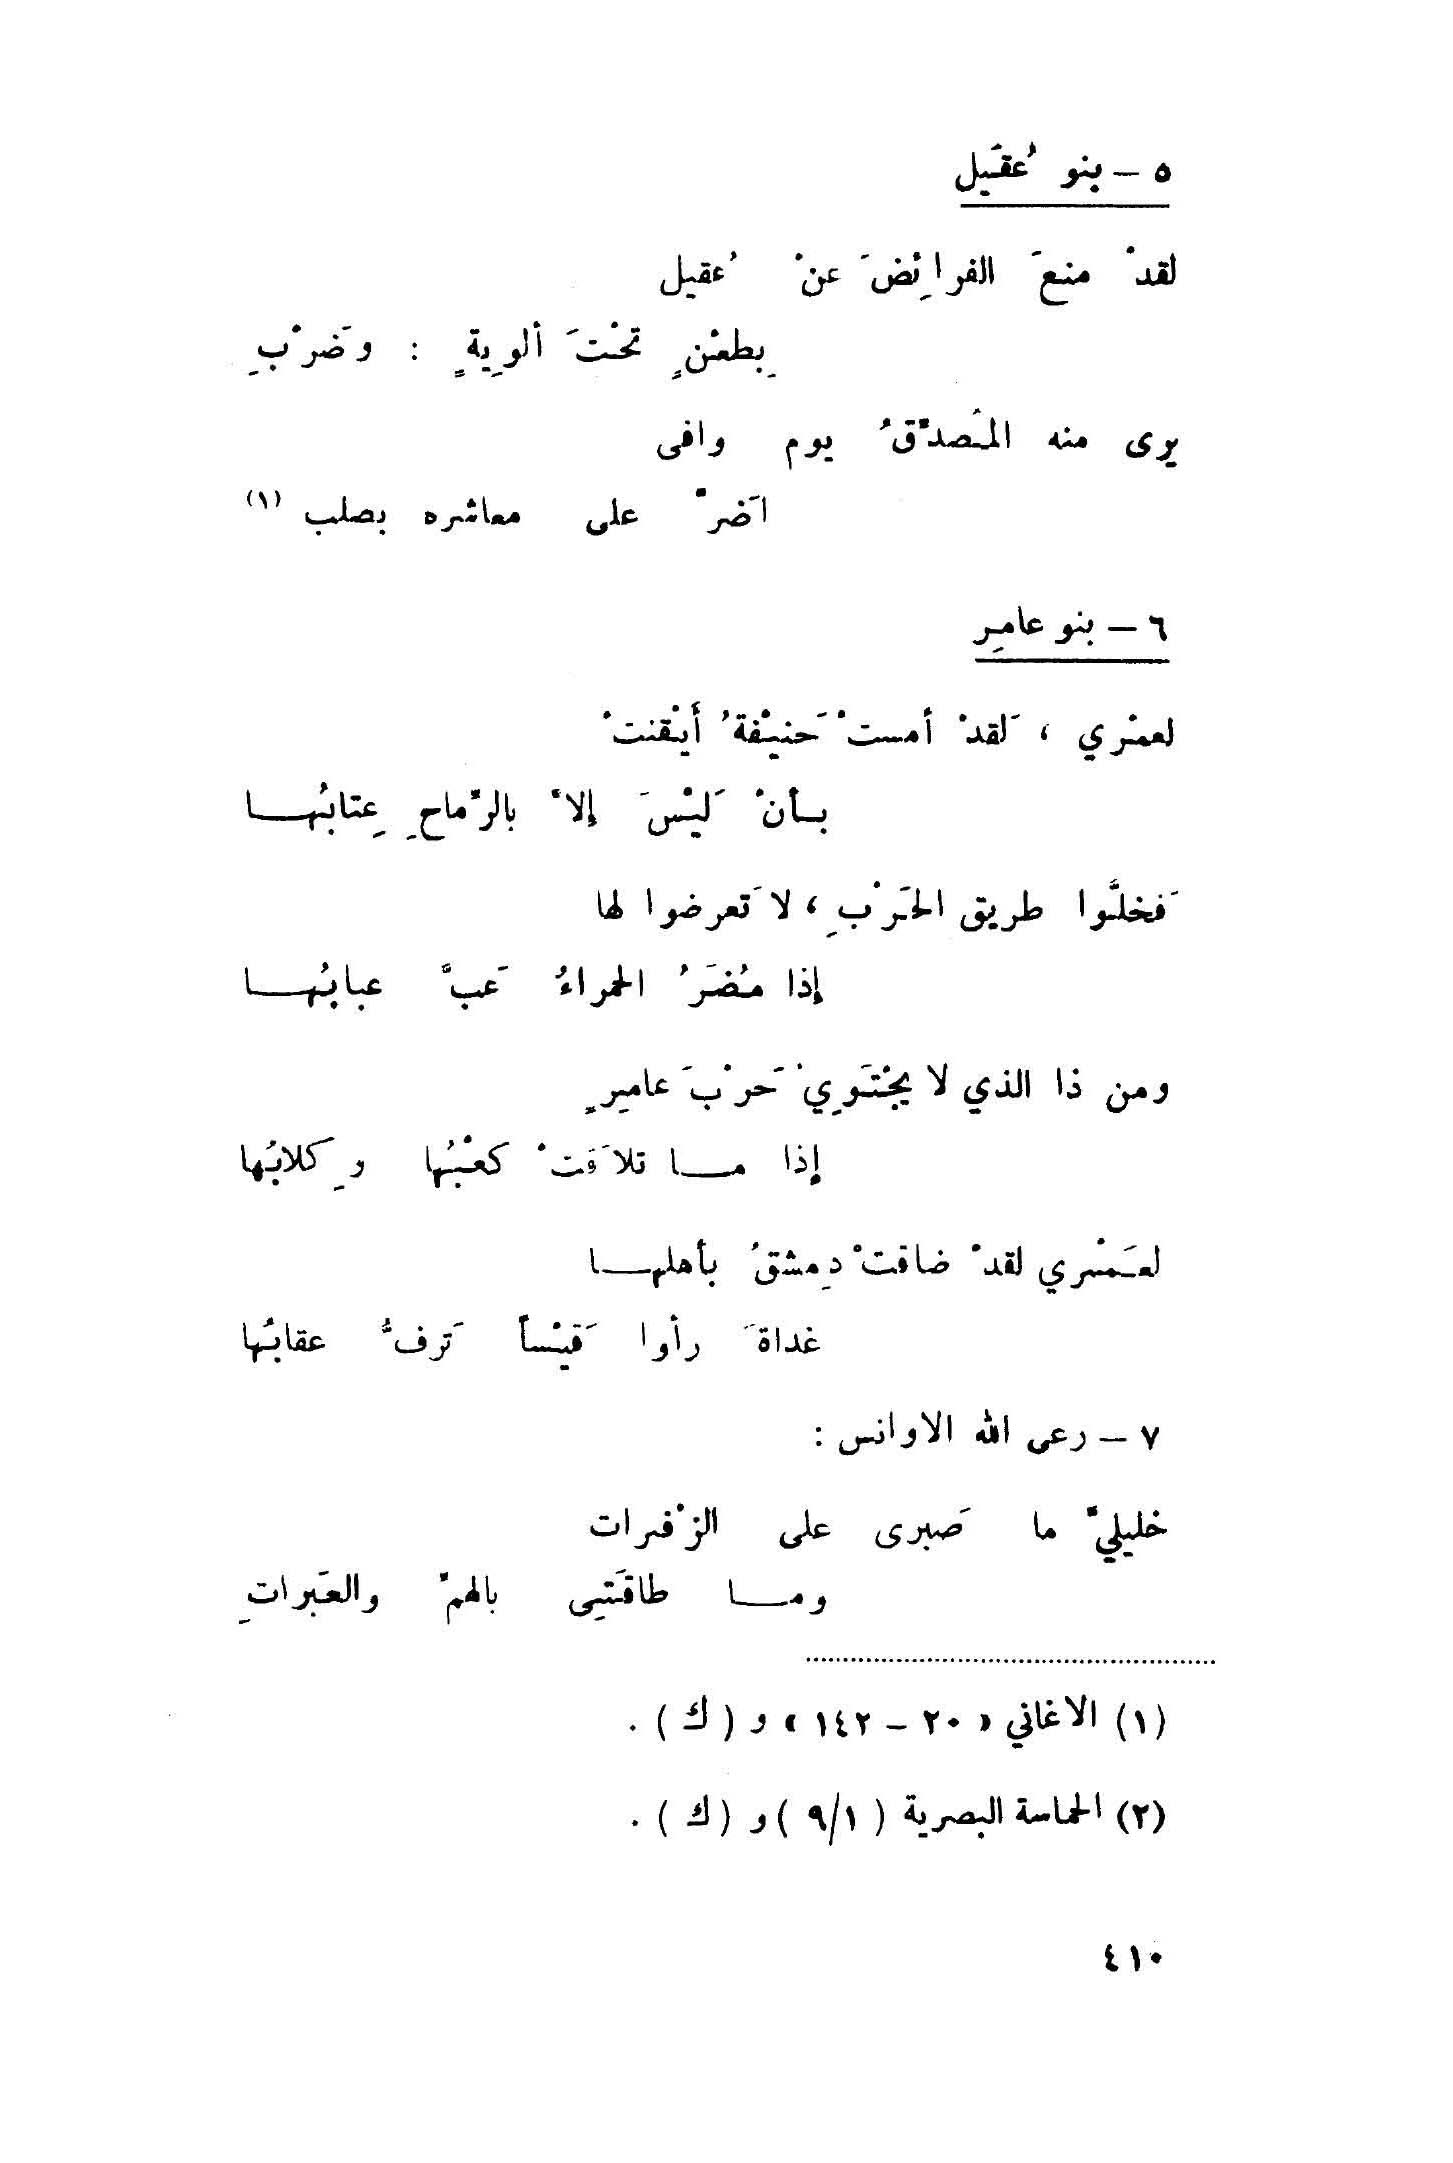 ٥ – بنو عُقَيل
لقدْ منعَ الفرائِضَ عنْ عُقيل
بِطعْنٍ تحْتَ ألوِيةٍ : وضَرْبِ
يرى منه المُصدّقُ يوم وافى
اضَرّ على معاشره بصلب (١)
٦ – بنو عامِر
لعمْري ، لَقدْ أمستْ حَنيْفةُ أَيْقنتْ
بـأنْ لَيْسَ إلاّ بالرّماحِ عِتابُهـــا
فَخلُّوا طريق الحَرْبِ ، لا تَعرضوا لها
إذا مُضَرُ الحمراءُ عَبَّ عبابُهـــا
ومن ذا الذي لا يجْتَوِيْ حَرْبَ عامِرٍ
إذا مـــا تلاقَتْ كعْبُها وكِلابُها
لعَمْري لقدْ ضاقتْ دِمشقُ بأهلهـــا
غداةَ رأوا قَيْساً تَرفُّ عقابُها
٧ – رعى الله الاوانس :
خليليّ ما صَبرى على الزْفرات
ومـــا طاقَتِى بالهمّ والعَبراتِ
(١) الاغاني « ٢٠ – ١٤٢ » و ( ك ) .
(٢) الحماسة البصرية ( ٩/١ ) و ( ك ) .
٤١٠